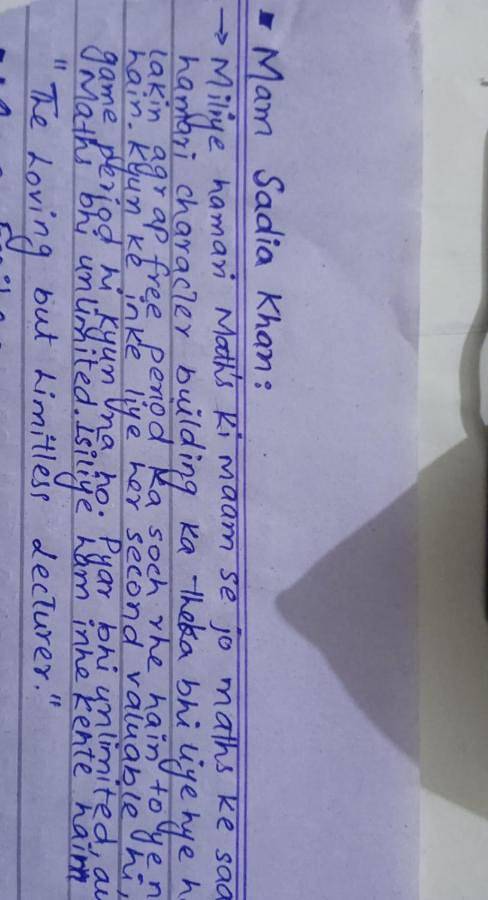 Mam Sadia Khan:
→ Miliye hamari Maths ki maam se jo maths ke saa
hamari character building ka theka bhi liye hye h
lakin agr ap free period ka soch rhe hain to ye n
hain. Kyun ke inke liye her second valuable hi,
game period hi kyun na ho. Pyar bhi unlimited, au
Maths bhi unlimited. Isiliye ham inhe kehte haim
"The Loving but Limitless Lecturer."